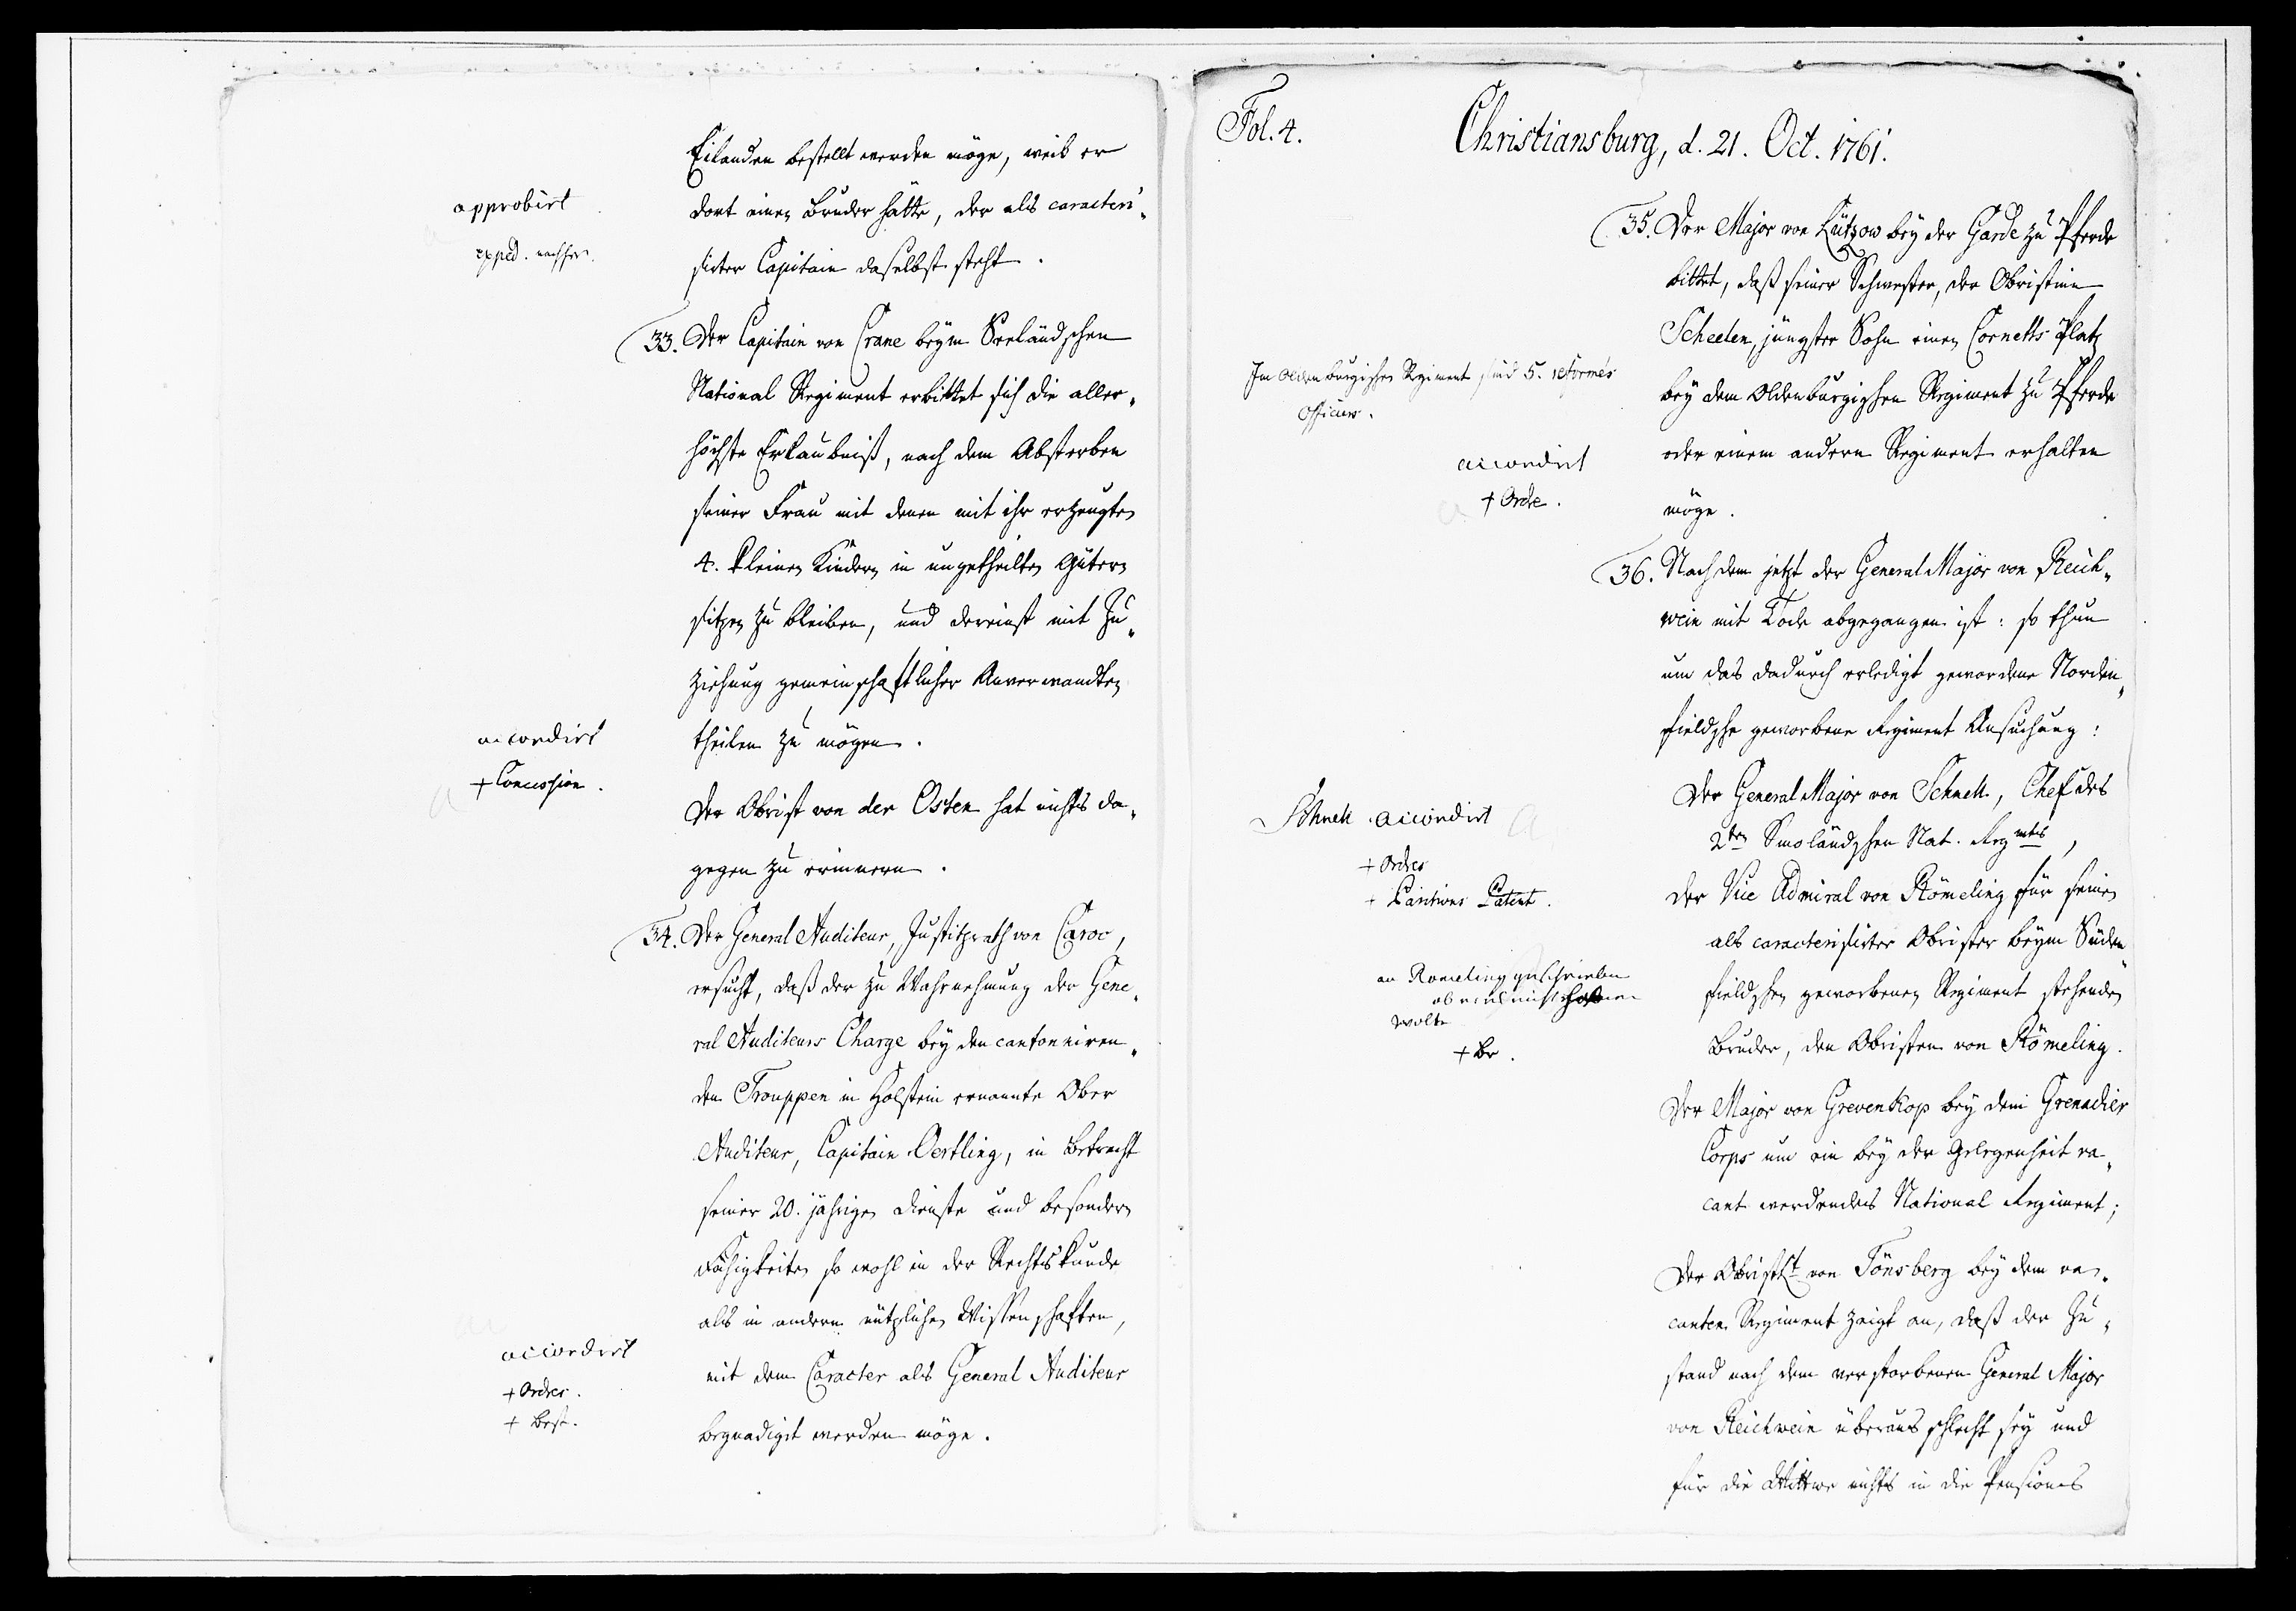 Eilanden bestellt werden möge, weil er
approbirt
dort einen Bruder hätte, der als caracteri„
exped.
sirter Capitain daselbst steht.
33. Der Capitain von Crane beym Seeländschen
National Regiment erbittet sich die aller„
höchste Erlaubniß, nach dem Absterben
seiner Frau mit denen mit ihr erzeugten
4. kleinen Kindern in ungetheilten Gütern
sitzen zu bleiben, und dereinst mit Zu„
ziehung gemeinschaftlicher Anverwandten
theilen zu mögen.
accordirt
+ Concession.
Der Obrist von der Osten hat nichts da„
gegen zu erinnern.
34. Der General Auditeur, Justitzrath von Caroc,
ersucht, daß der zu Wahrnehmung der Gene„
ral Auditeurs Charge bey den cantonniren„
den Trouppen in Holstein ernannte Ober
Auditeur, Capitain Oertling, in Betracht
seiner 20. jährigen Dienste und besondern
Fähigkeiten so wohl in der Rechtskunde
als in andern nützlichen Wissenschaften,
mit dem Caracter als General Auditeur
begnadigt werden möge.
accordirt
+ Ordres.
+ Best.
Fol. 4.
Christiansburg, d. 21. Oct. 1761.
35. Der Major von Lützow bey der Garde zu Pferde
bittet, daß seiner Schwester, der Obristinn
Scheelen, jüngster Sohn einen Cornetts Platz
bey dem Oldenburgischen Regiment zu Pferde
oder einem andern Regiment erhalten
möge.
Im Oldenburgischen Regiment sind 5. reformés
Officiers.
accordirt
+ Ordre.
36. Nachdem jetzt der General Major von Reich„
wein mit Tode abgegangen ist: so thun
um das dadurch erledigt gewordene Norden„
fieldsche geworbene Regiment Ansuchung:
Der General Major von Schnell, Chef des
2ten Smoländschen Nat. Regmts,
Schnell accordirt
+ Ordres
+ Patent.
der Vice Admiral von Römeling für seinen
als caracterisirter Obrister beym Süden„
fieldschen geworbenen Regiment stehenden
Bruder, den Obristen von Römeling.
an Romeling geschrieben
ob
wolte
+ Br.
Der Major von Grevenkop bey dem Grenadier
Corps um ein bey der Gelegenheit va„
cant werdendes National Regiment;
Der Obristlt von Tönsberg bey dem va„
canten Regiment zeigt an, daß der Zu„
stand nach dem verstorbenen General Major
von Reichwein überaus schlecht sey und
für die Wittwe nichts in die Pensions